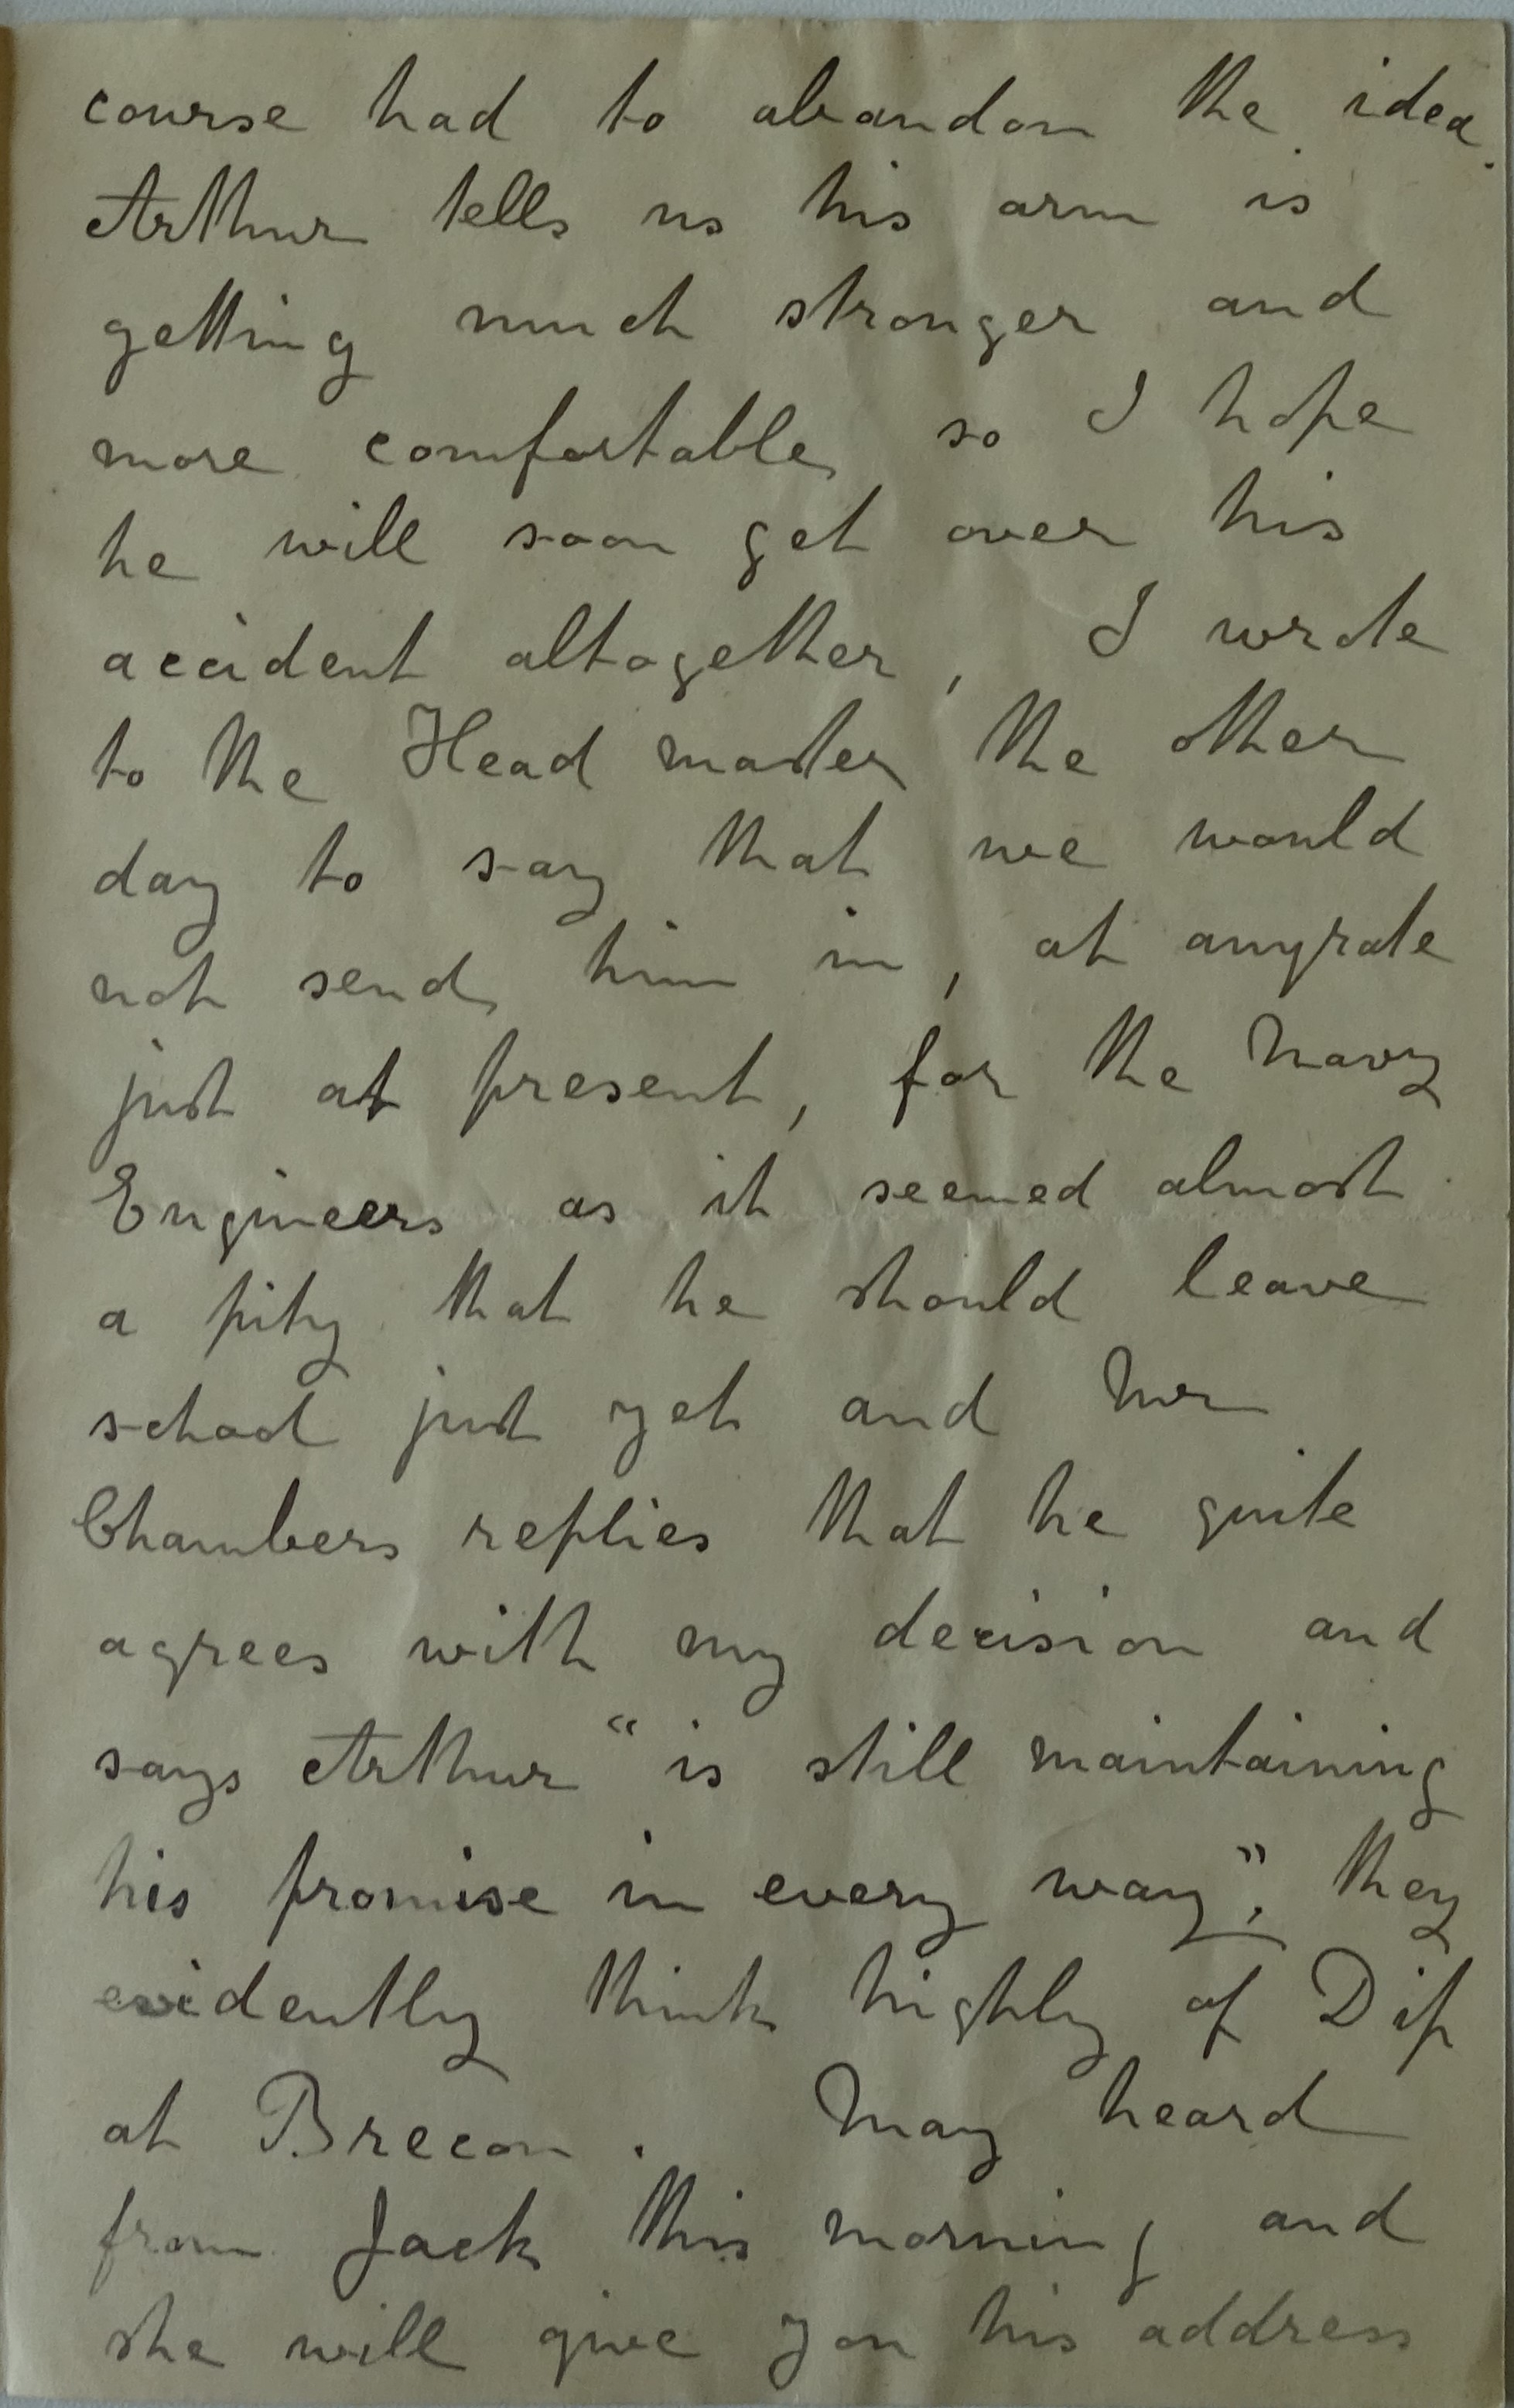 course had to abandon the idea.
Arthur tells us his arm is
getting much stronger and
more comfortable so I hope
he will soon get over his
accident altogether, I wrote
to the Head master the other
day to say that we would
not send him in, at anyrate
just at present, for the Navy
Engineers as it seemed almost
a pity that he should leave
school just yet and Mr
Chambers replies that he quite
agrees with my decision and
says Arthur "is still maintaining
his promise in every way". They
evidently think highly of Dip
at Brecon. May heard
from Jack this morning and
she will give you his address